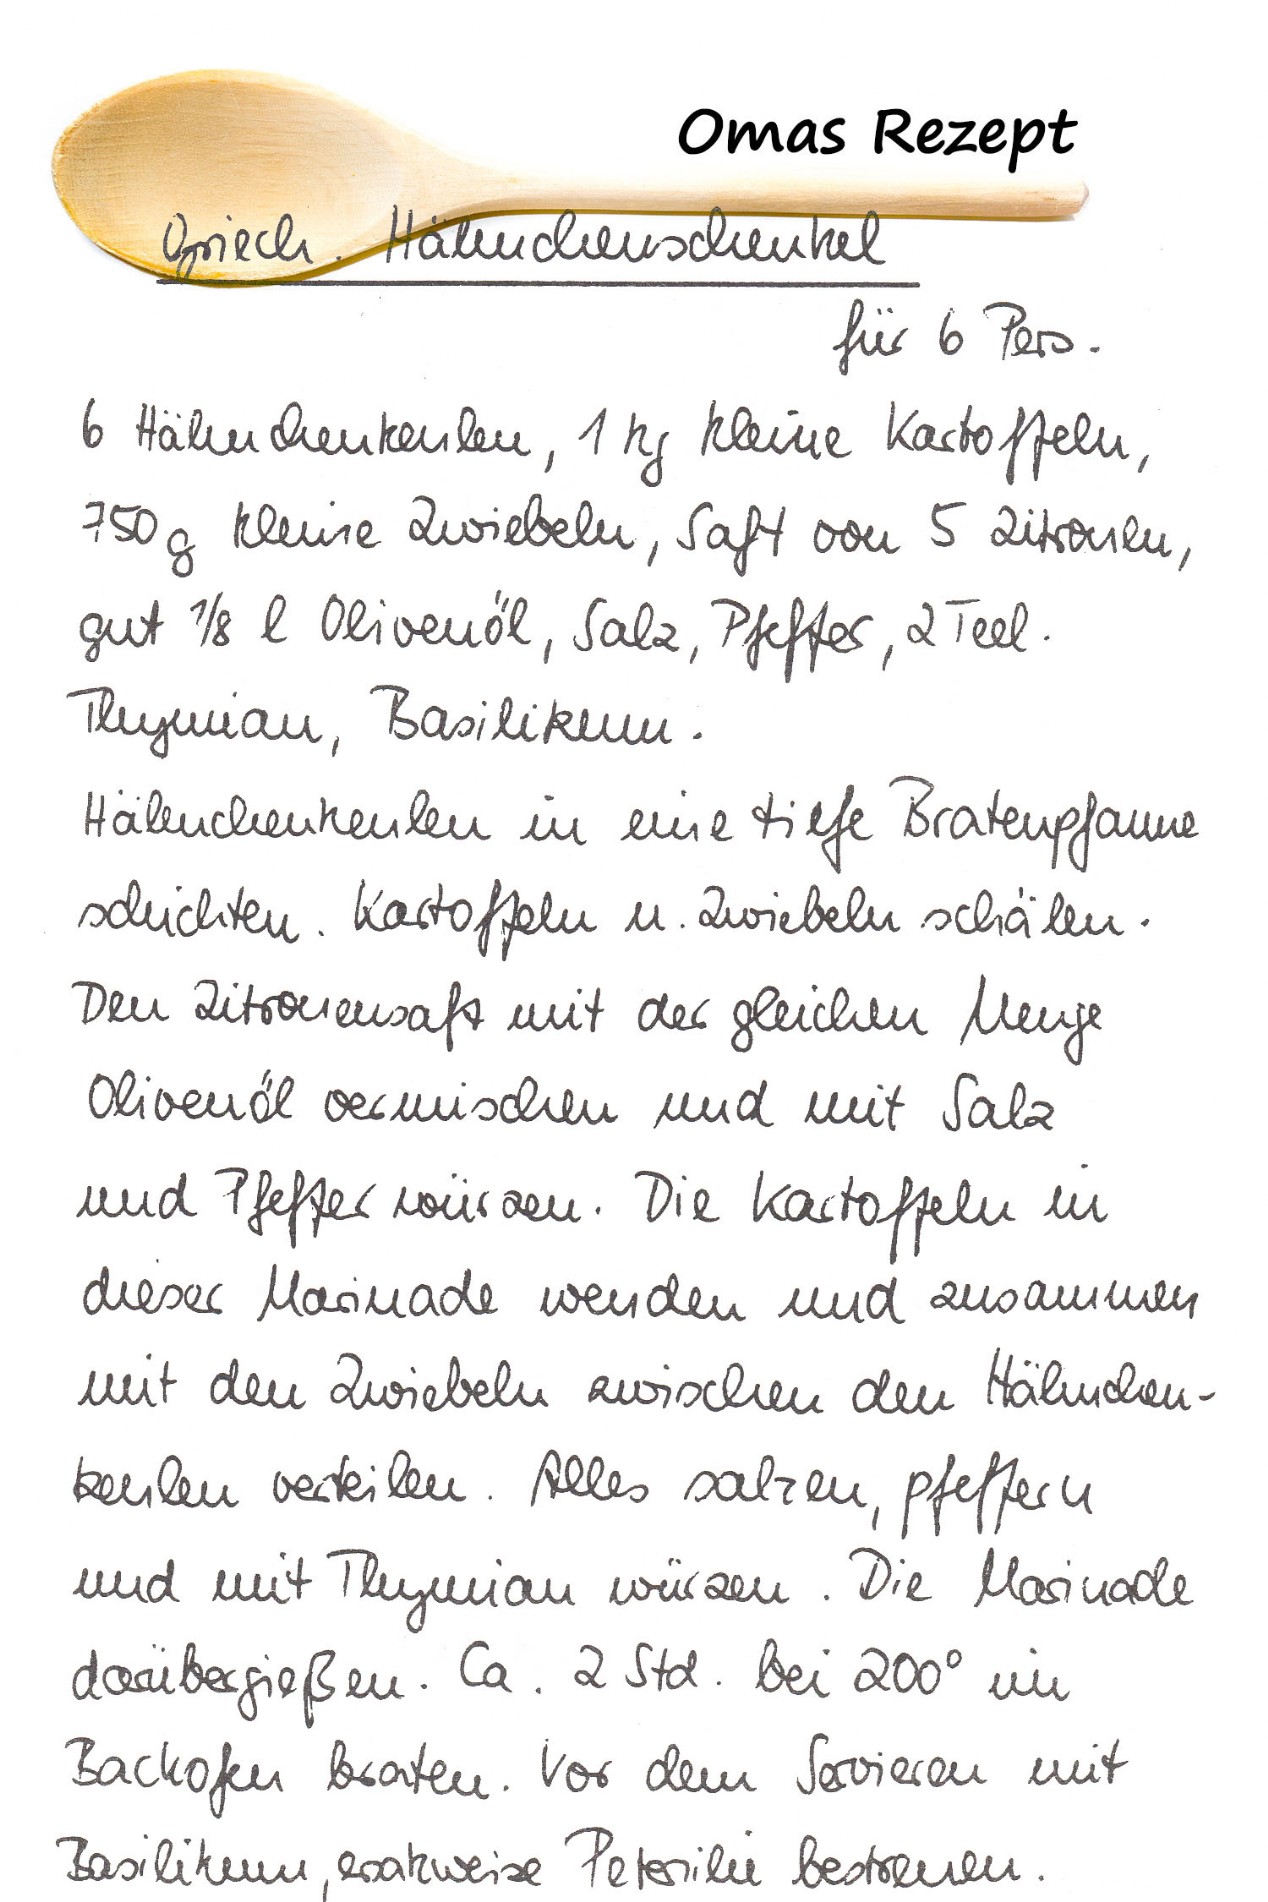 Omas Rezept
Griech. Hähnchenschenkel
für 6 Pers.
6 Hähnchenkeulen, 1 kg kleine Kartoffeln,
750 g kleine Zwiebeln, Saft von 5 Zitronen,
gut 1/8 l Olivenöl, Salz, Pfeffer, 2 Teel.
Thymian, Basilikum.
Hähnchenkeulen in eine tiefe Bratenpfanne
schichten. Kartoffeln u. Zwiebeln schälen.
Den Zitronensaft mit der gleichen Menge
Olivenöl vermischen und mit Salz
und Pfeffer würzen. Die Kartoffeln in
dieser Marinade wenden und zusammen
mit den Zwiebeln zwischen den Hähnchen-
keulen verteilen. Alles salzen, pfeffern
und mit Thymian würzen. Die Marinade
darübergießen. Ca. 2 Std. bei 200° im
Backofen braten. Vor dem Servieren mit
Basilikum, ersatzweise Petersilie bestreuen.